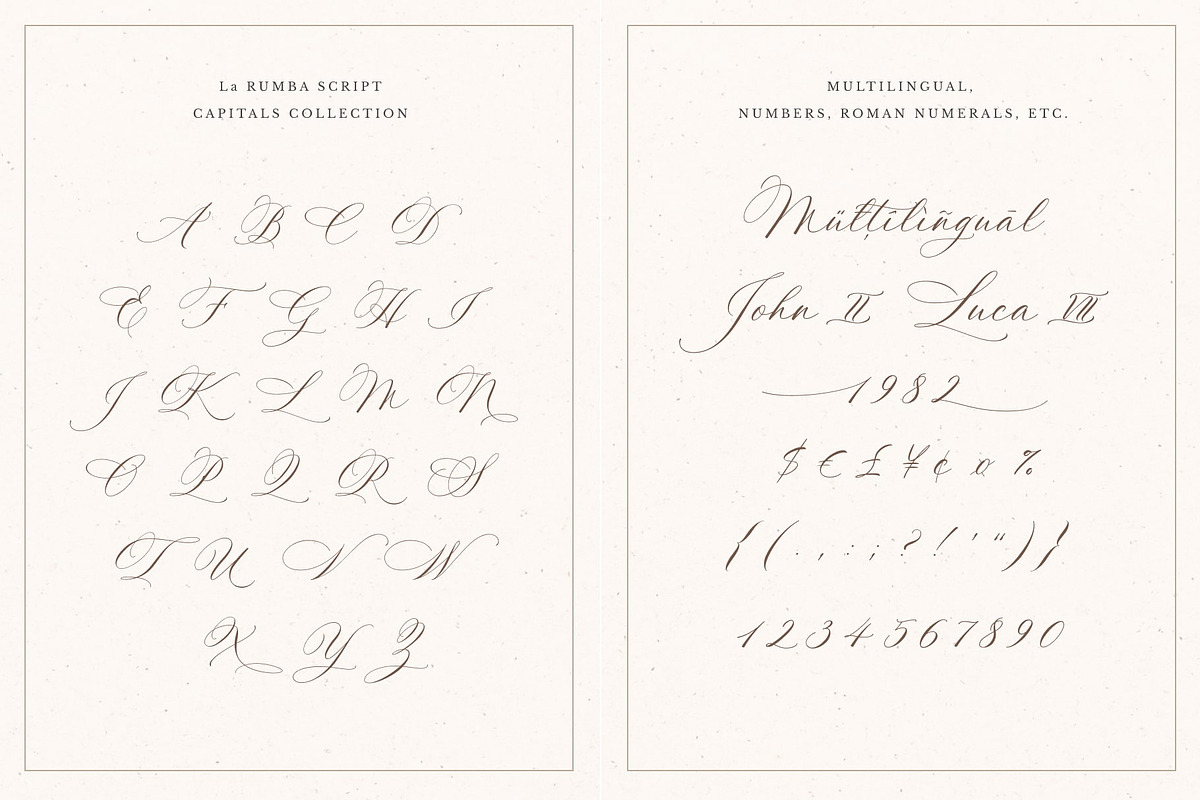 La RUMBA SCRIPT
CAPITALS COLLECTION
A B C D
E F G H I
J K L M N
O P Q R S
T U V W
X Y Z
MULTILINGUAL,
NUMBERS, ROMAN NUMERALS, ETC.
John II Luca VII
1982
$ € £ ¥ ¢ ¤ %
{ ( . , : ; ? ! ' " ) }
1 2 3 4 5 6 7 8 9 0